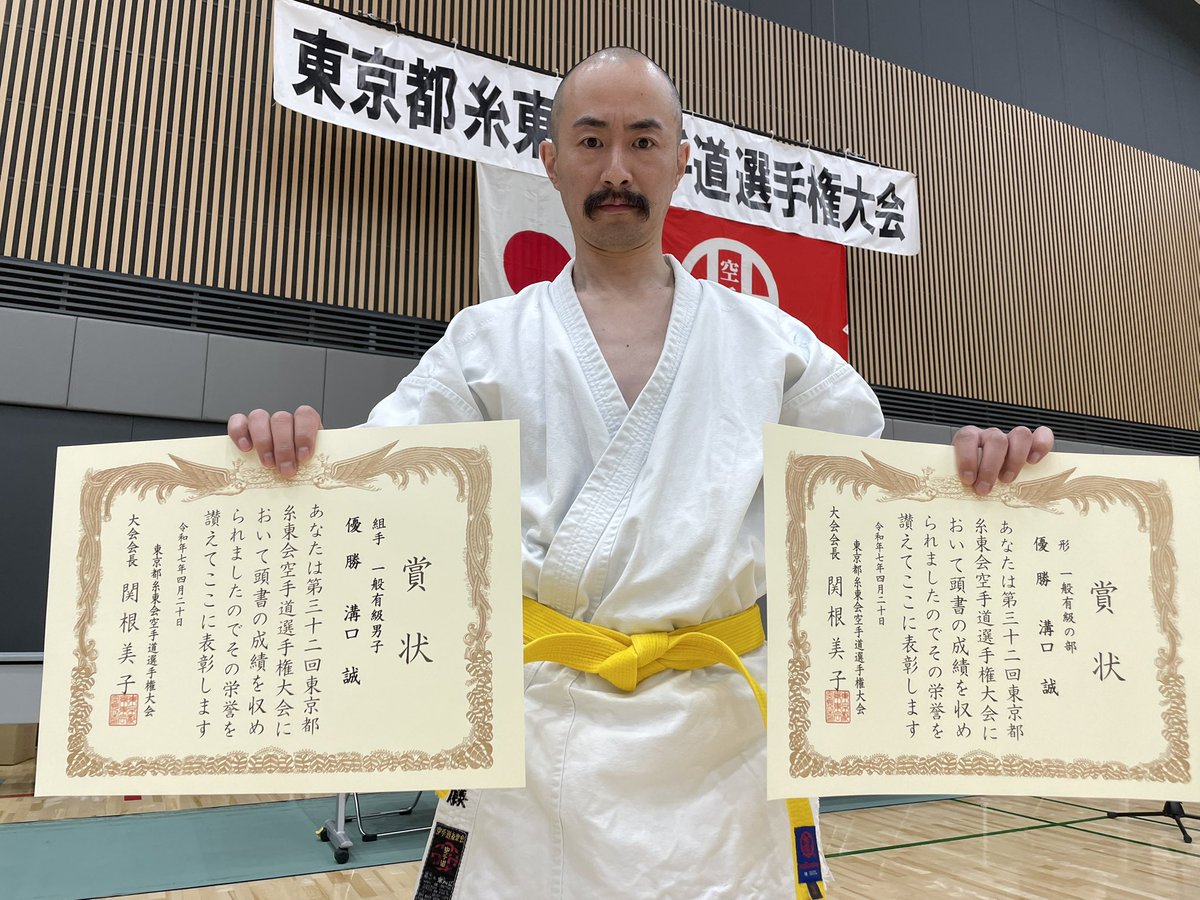 東京都糸東
道選手権大会
空
賞状
組手 一般有級男子
優勝 溝口 誠
あなたは第三十二回東京都
糸東会空手道選手権大会に
おいて頭書の成績を収め
られましたのでその栄誉を
讃えてここに表彰します
令和七年四月二十日
東京都糸東会空手道選手権大会
大会会長 関根美子
賞状
形 一般有級の部
優勝 溝口 誠
あなたは第三十二回東京都
糸東会空手道選手権大会に
おいて頭書の成績を収め
られましたのでその栄誉を
讃えてここに表彰します
令和七年四月二十日
東京都糸東会空手道選手権大会
大会会長 関根美子
藤